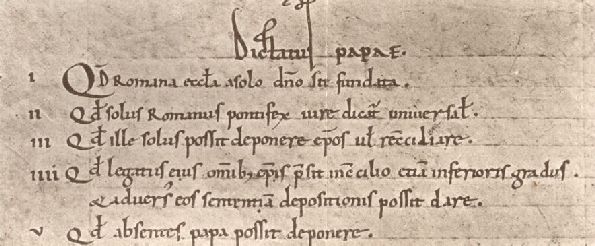 Dictatus papae.
i Qđ Romana eccła a solo dño sit fundata.
ii Qđ solus Romanus pontifex iure dicat̃ universał.
iii Qđ ille solus possit deponere ep̃os uł recc̃iliare.
iiii Qđ legatus eius om̃ibꝫ ep̃is p̃sit in c̃cilio etiã inferioris gradus.
& adversꝰ eos sententiã depositionis possit dare.
v Qđ absentes papa possit deponere.